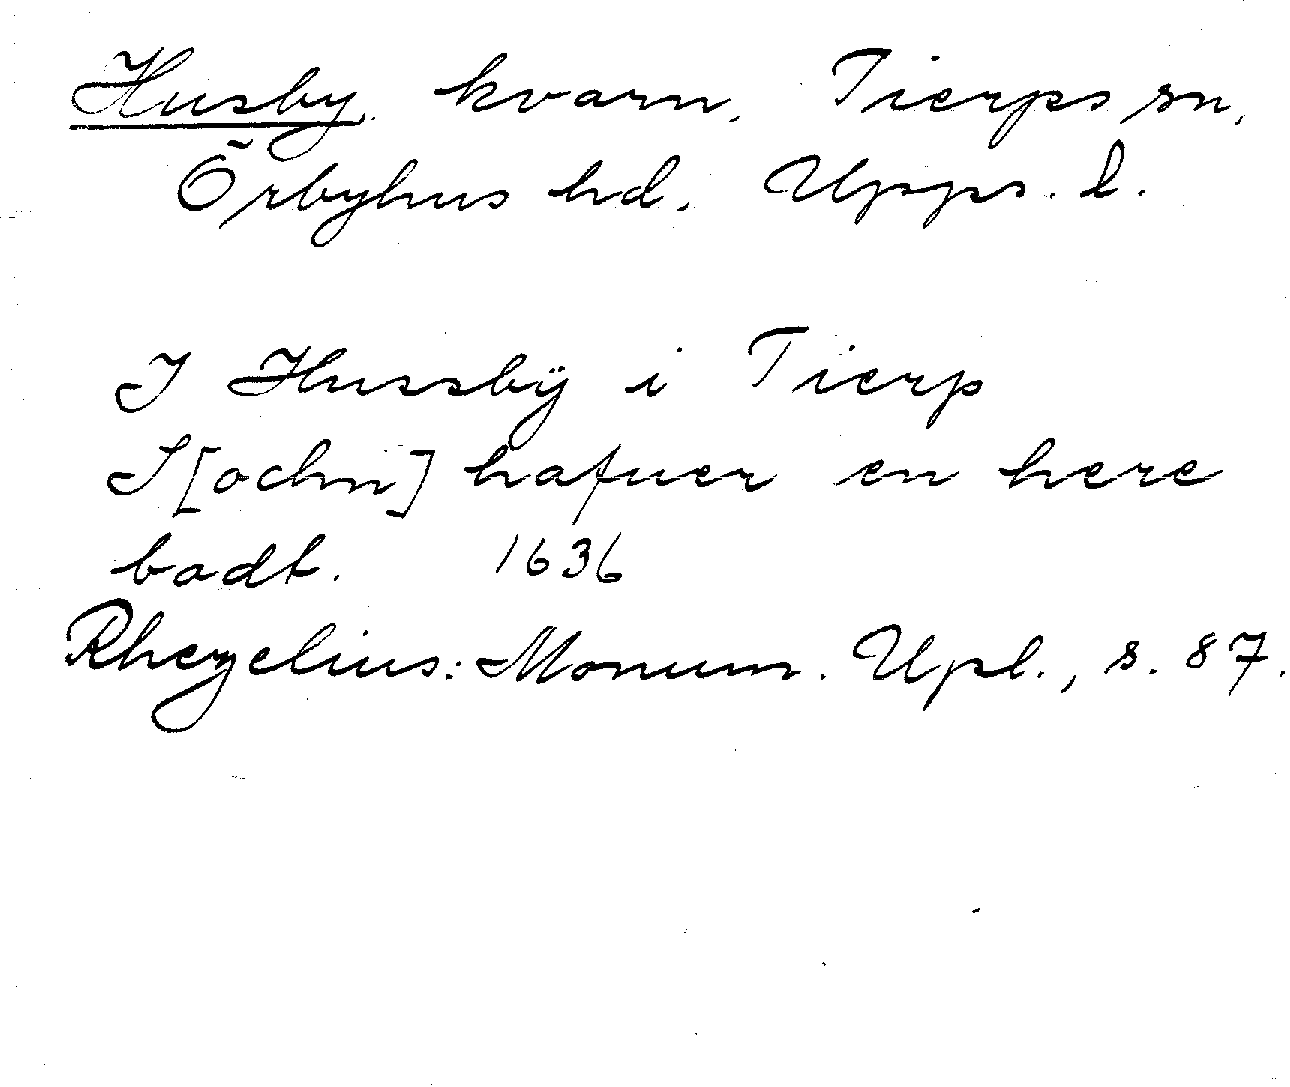 Husby, kvarn, Tierps sn,
Örbyhus hd, Upps. l.
I Hussbÿ i Tierp
S[ochn] hafuer en here
badt. 1636
Rhezelius: Monum. Upl., s. 87.